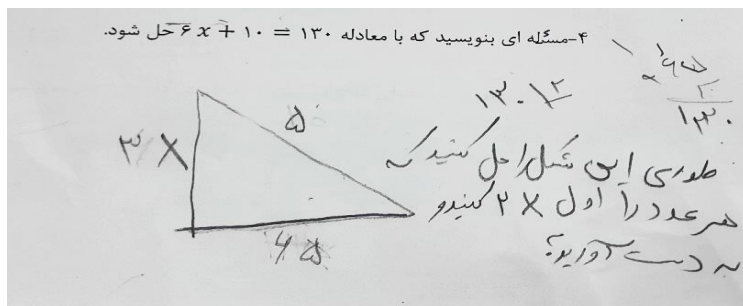 ۴-مسئله ای بنویسید که با معادله ۱۳۰ = ۱۰ + ۶x حل شود.
۶۵
۲
۱۳۰
۱۳۰ ۲
۵
۳X
۶۵
طوری این شکل را حل کنید که
هر عدد را اول ۲X کنید و
به دست آورید؟